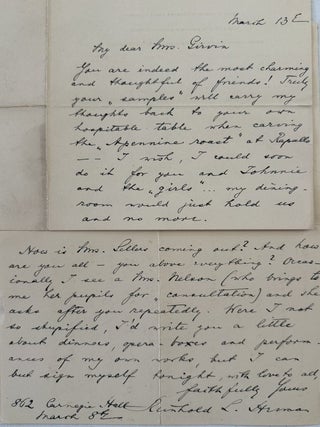 March 13th
My dear Mrs. Girvin
You are indeed the most charming
and thoughtful of friends! Truly
your „samples" will carry my
thoughts back to your own
hospitable table when carving
the „Apennine roast" at Rapallo
— I wish, I could soon
do it for you and Johnnie
and the „girls"... my dining-
room would just hold us
and no more.
How is Mrs. Sellers coming out? And how
are you all – you above everything? Occas-
ionally I see a Mrs. Nelson (who brings to
me her pupils for „consultation) and she
asks after you repeatedly. Were I not
so stupified, I'd write you a little
about dinners, opera boxes and perform-
ances of my own works, but I can
but sign myself tonight, with love to all,
faithfully Yours
862 Carnegie Hall Reinhold L. Herman
March 8th